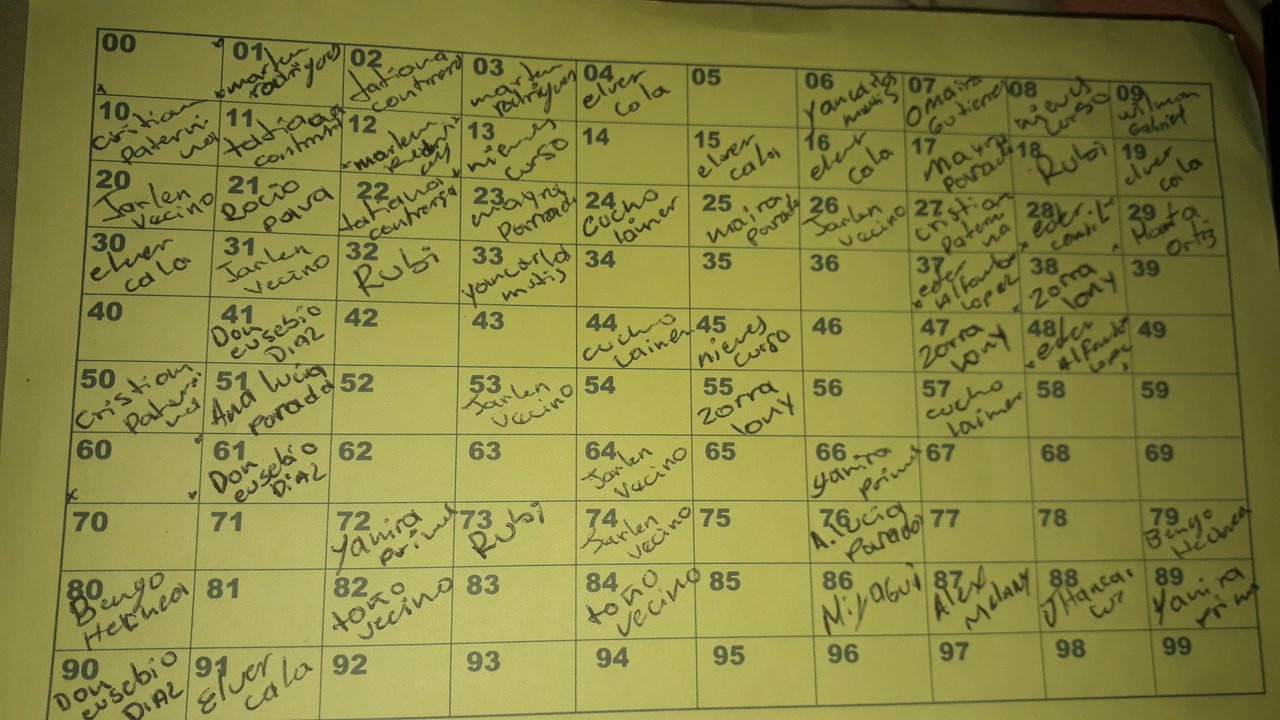 00
01 marlen rodrigues
02 tatiana contreras
03 marlen rodrigues
04 elver cala
05
06 yancarlos mutis
07 Omaira Gutierrez
08 nieves curso
09 wilman Gabriel
10 cristian paterni na
11 tatiana
12 marlem
13 nieves curso
14
15 elver cala
16 elver cala
17 mayra parrada
18 Rubi
19 elver cala
20 Jarlen vecino
21 Rocio parra
22 tatiana
23 mayra Parrada
24 Cucho laimer
25 maira parada
26 Jarlen vecino
27 cristian patern na
28 eder
29 Marta Ortis
30 elver cala
31 Jarlen vecino
32 Rubi
33 yancarlo mutis
34
35
36
37 eder Alfonso lopez
38 zorra lony
39
40
41 Don eusebio DiAZ
42
43
44 cucho laimer
45 nieves curso
46
47 zorra lony
48 eder
49
50 cristian
51 Ana lucia parada
52
53 Jarlen vecino
54
55 zorra lony
56
57 cucho laimer
58
59
60
61 Don eusebio DiAZ
62
63
64 Jarlen vecino
65
66 yamira prima
67
68
69
70
71
72 yamira prima
73 Rubi
74 Jarlen vecino
75
76 A.lucia parada
77
78
79 Bengo
80 Bengo
81
82 toño vecino
83
84 toño vecino
85
86 Miyagui
87 Alex Melany
88
89 yamira prima
90 Don eusebio DiAZ
91 Elver cala
92
93
94
95
96
97
98
99